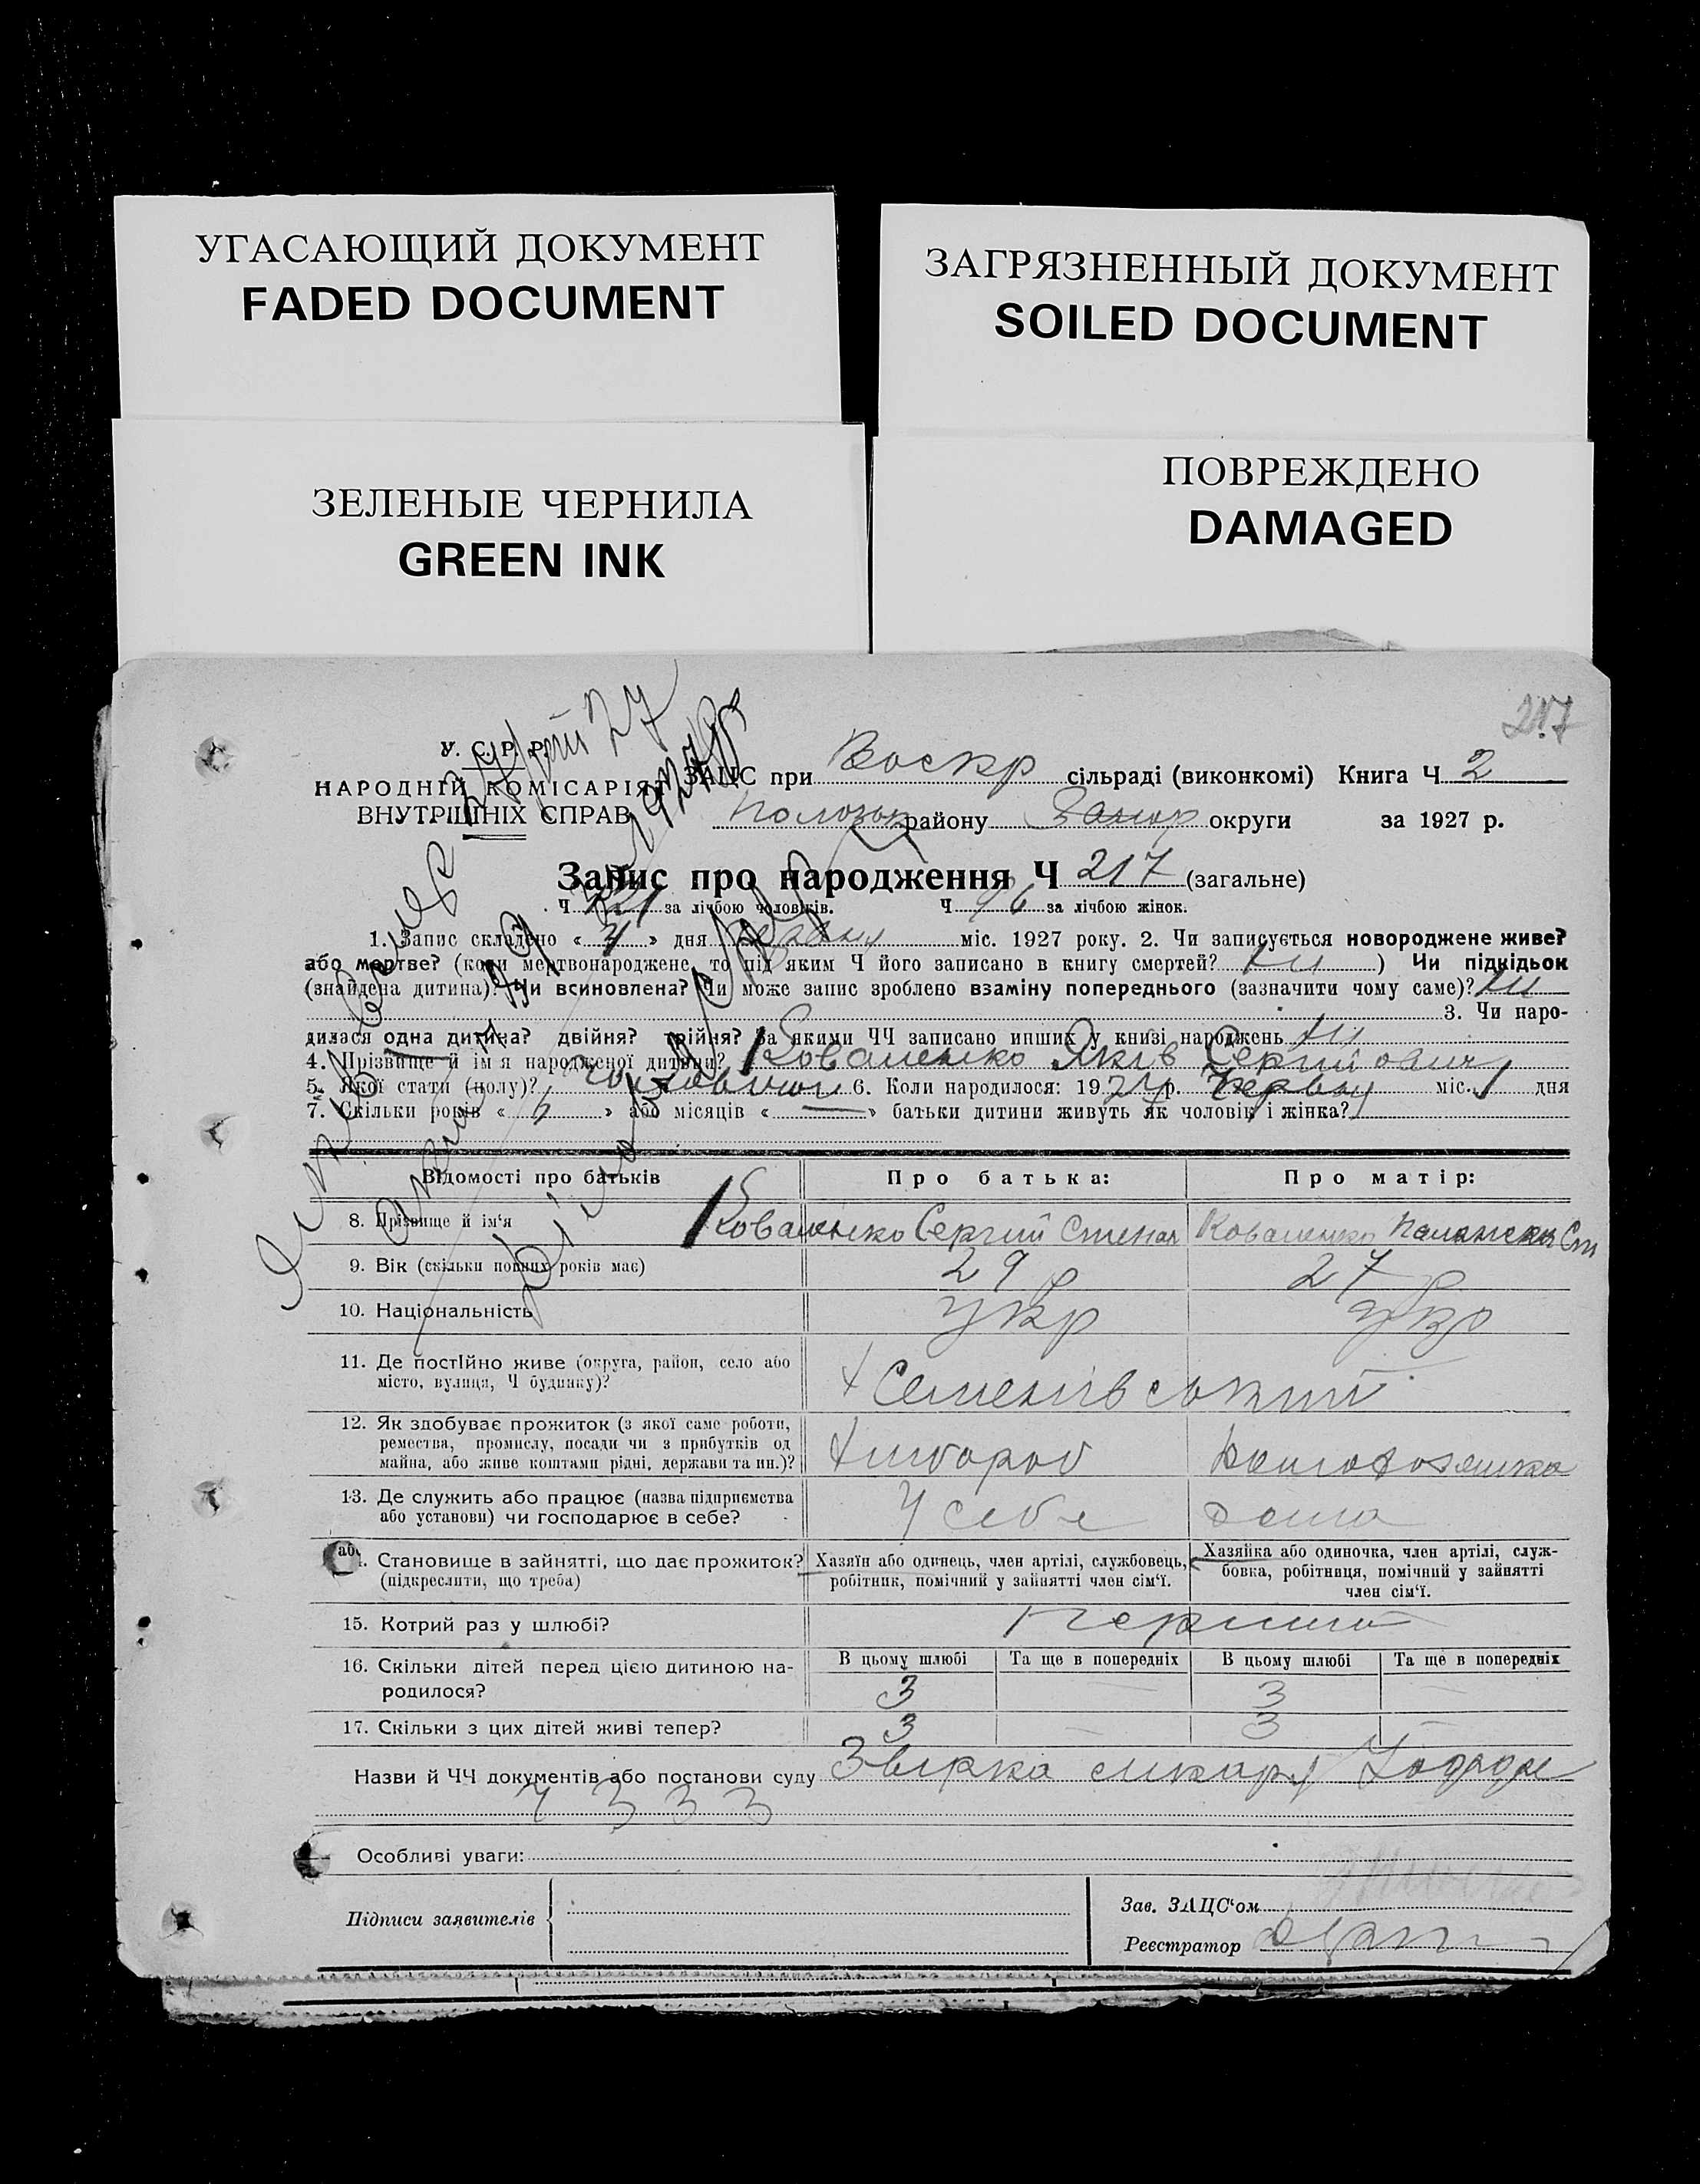 УГАСАЮЩИЙ ДОКУМЕНТ
FADED DOCUMENT
ЗАГРЯЗНЕННЫЙ ДОКУМЕНТ
SOILED DOCUMENT
ЗЕЛЕНЫЕ ЧЕРНИЛА
GREEN INK
ПОВРЕЖДЕНО
DAMAGED
217
У. С. Р. Р.
НАРОДНІЙ КОМІСАРІЯТ
ВНУТРІШНІХ СПРАВ
ЗАЦС при Воскр сільраді (виконкомі) Книга Ч 2
Полог району Запор округи за 1927 р.
Запис про народження Ч 217 (загальне)
Ч 121 за лічбою чоловіків. Ч 96 за лічбою жінок.
1. Запис складено « 4 » дня червня міс. 1927 року. 2. Чи записується новороджене живе?
або мертве? (коли мертвонароджене, то під яким Ч його записано в книгу смертей? ні ) Чи підкідьок
(знайдена дитина)? Чи всиновлена? Чи може запис зроблено взаміну попереднього (зазначити чому саме)? ні
3. Чи наро-
дилася одна дитина? двійня? трійня? За якими ЧЧ записано инших у книзі народжень ні
4. Прізвище й ім'я народженої дитини? Коваленко Яків Сергійович
5. Якої статі (полу)? чоловічої 6. Коли народилося: 1927 р. Червня міс. 1 дня
7. Скільки років « 6 » або місяців « — » батьки дитини живуть як чоловік і жінка?
Відомості про батьків Про батька: Про матір:
8. Прізвище й ім'я Коваленко Сергий Степан Коваленко Палажка Ст
9. Вік (скільки повних років має) 29 р 27 р
10. Національність укр укр
11. Де постійно живе (округа, район, село або
місто, вулиця, Ч будинку)? х Семенівський
12. Як здобуває прожиток (з якої саме роботи,
ремества, промислу, посади чи з прибутків од
майна, або живе коштами рідні, держави та ин.)? хлібороб домохозяшка
13. Де служить або працює (назва підприємства
або установи) чи господарює в себе? У себе дома
Становище в зайнятті, що дає прожиток?
(підкреслити, що треба)
Хазяїн або одинець, член артілі, службовець,
робітник, помічний у зайнятті член сім'ї.
Хазяйка або одиночка, член артілі, служ-
бовка, робітниця, помічний у зайнятті
член сім'ї.
15. Котрий раз у шлюбі? перший
16. Скільки дітей перед цією дитиною на-
родилося?
В цьому шлюбі Та ще в попередніх В цьому шлюбі Та ще в попередніх
3 — 3 —
17. Скільки з цих дітей живі тепер? 3 — 3 —
Назви й ЧЧ документів або постанови суду Звірка
ч 333
Особливі уваги:
Підписи заявителів
Зав. ЗАЦС'ом
Реєстратор